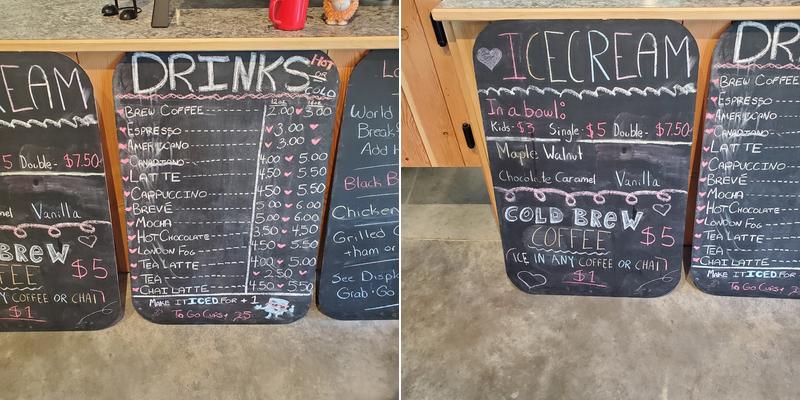 EAM
5 Double- $7.50
el Vanilla
BREW
FEE $5
NY COFFEE OR CHAI
$1
DRINKS HOT
OR
COLD
12oz. 16oz.
BREW COFFEE 2.00 3.00
ESPRESSO 3.00
AMERICANO 3.00
CANADIANO 4.00 5.00
LATTE 4.50 5.50
CAPPUCCINO 4.50 5.50
BREVÉ 5.00 6.00
MOCHA 5.00 6.00
HOT CHOCOLATE 3.50 4.50
LONDON FOG 4.50 5.50
TEA LATTE 4.00 5.00
TEA 2.50
CHAI LATTE 4.50 5.50
MAKE IT ICED FOR + 1
TO GO CUPS + .25
World
Break
Add
Black B
Chicken
Grilled C
+ham or
See Displa
Grab + Go
ICECREAM
In a bowl:
Kids- $3 Single- $5 Double- $7.50
Maple Walnut
Chocolate Caramel Vanilla
COLD BREW
COFFEE $5
ICE IN ANY COFFEE OR CHAI
$1
DR
BREW COFFEE
ESPRESSO
AMERICANO
CANADIANO
LATTE
CAPPUCCINO
BREVÉ
MOCHA
HOT CHOCOLATE
LONDON FOG
TEA LATTE
TEA
CHAI LATTE
MAKE IT ICED FO
TO GO CUPS